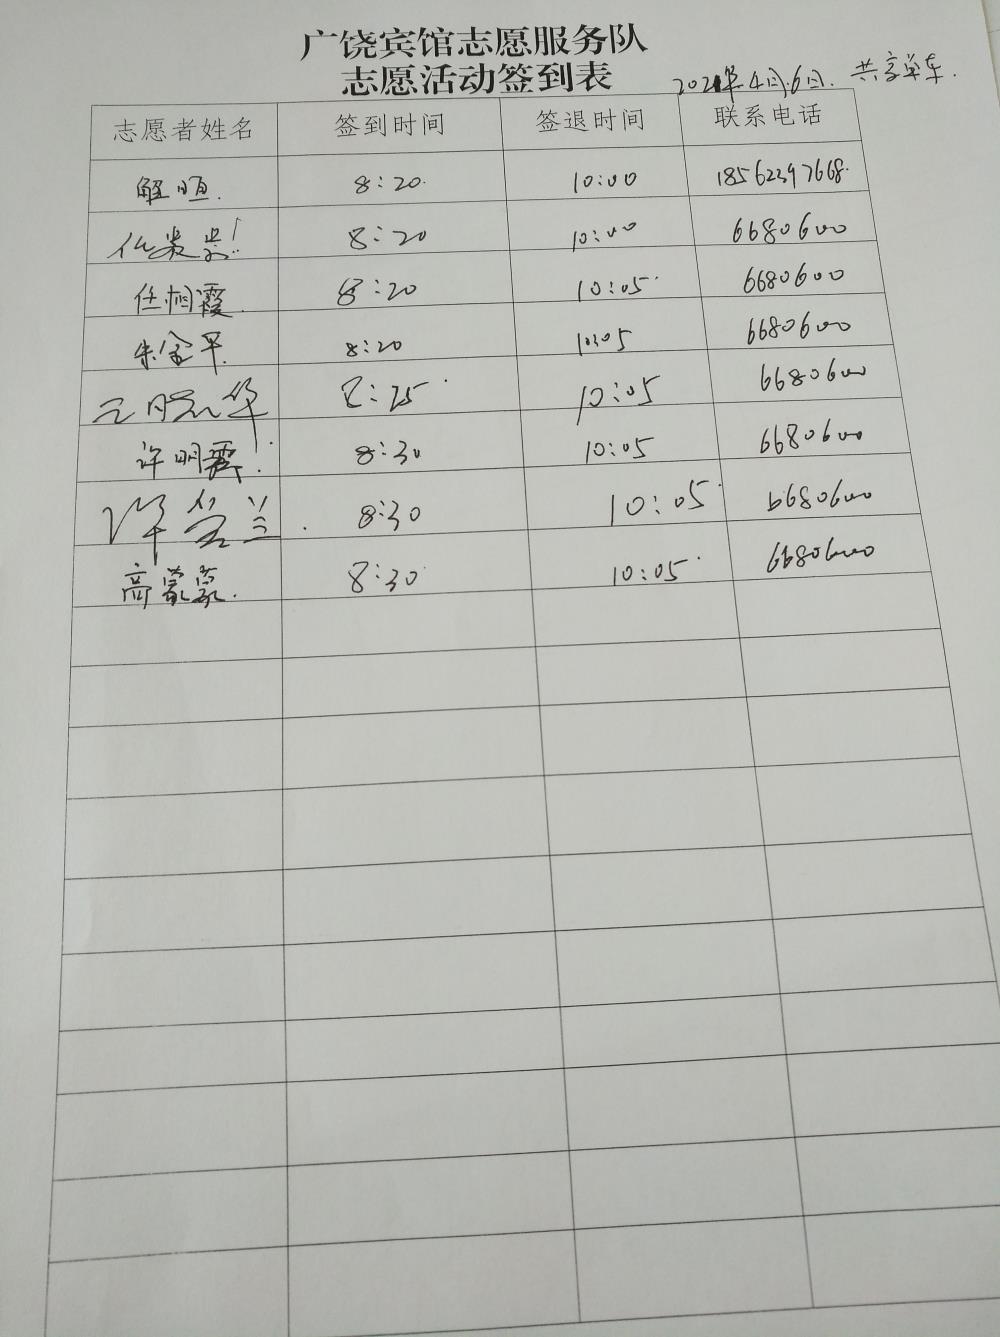 广饶宾馆志愿服务队
志愿活动签到表
2021年4月6日. 共享单车.
志愿者姓名 签到时间 签退时间 联系电话
解恒. 8:20. 10:00 18562397668.
8:20 10:00 6680600
任相霞 8:20 10:05 6680600
朱金平. 8:20 10:05 6680600
8:25 10:05 6680600
许明霞 8:30 10:05 6680600
许兰 8:30 10:05 6680600
高蒙蒙. 8:30 10:05 6680600